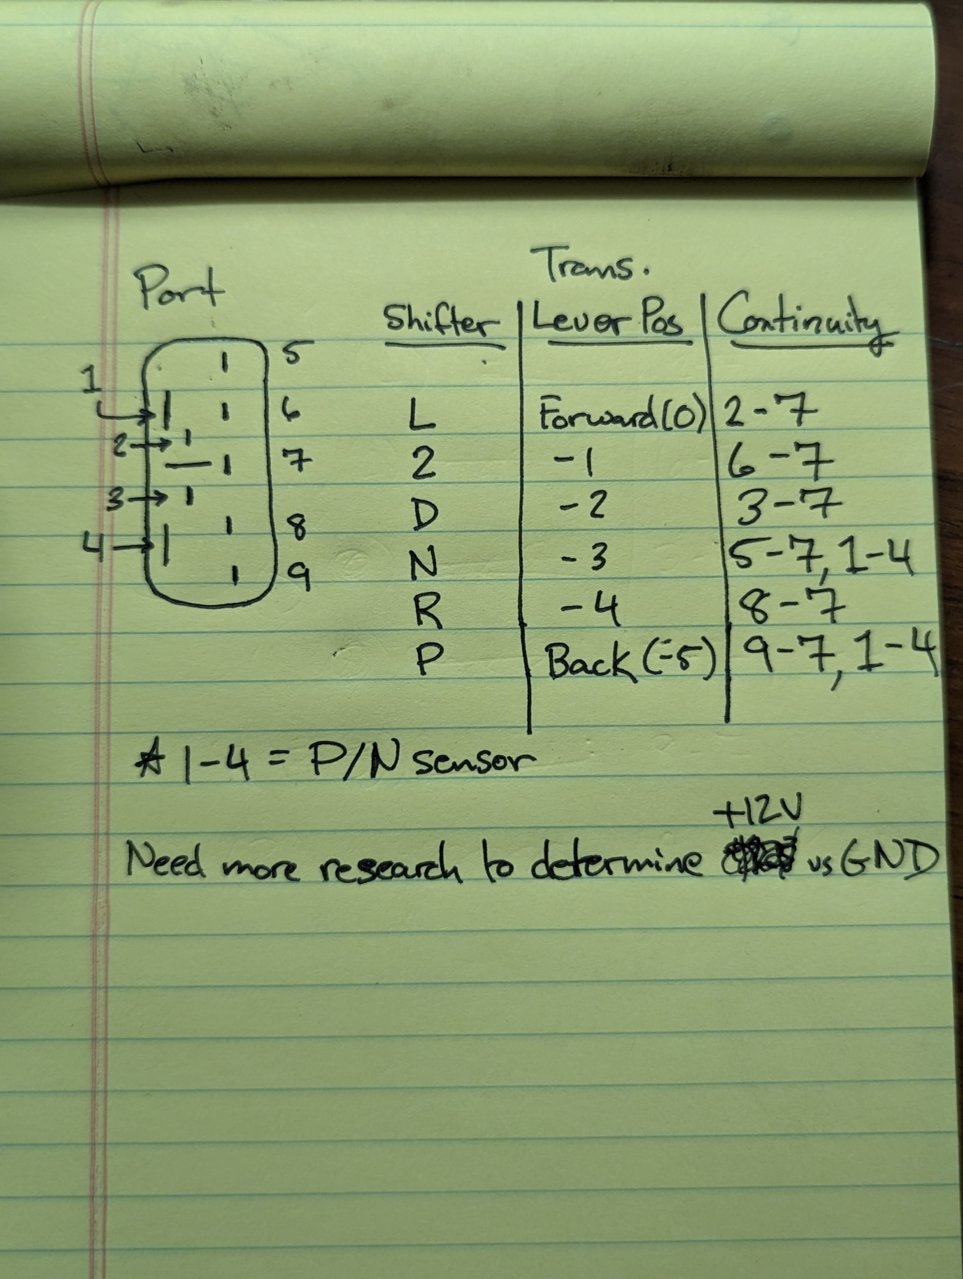 Port
Trans.
Shifter Lever Pos Continuity
1 5
6
2 7
3
4 8
9
L Forward(0) 2-7
2 -1 6-7
D -2 3-7
N -3 5-7, 1-4
R -4 8-7
P Back(-5) 9-7, 1-4
* 1-4 = P/N sensor
+12V
Need more research to determine vs GND